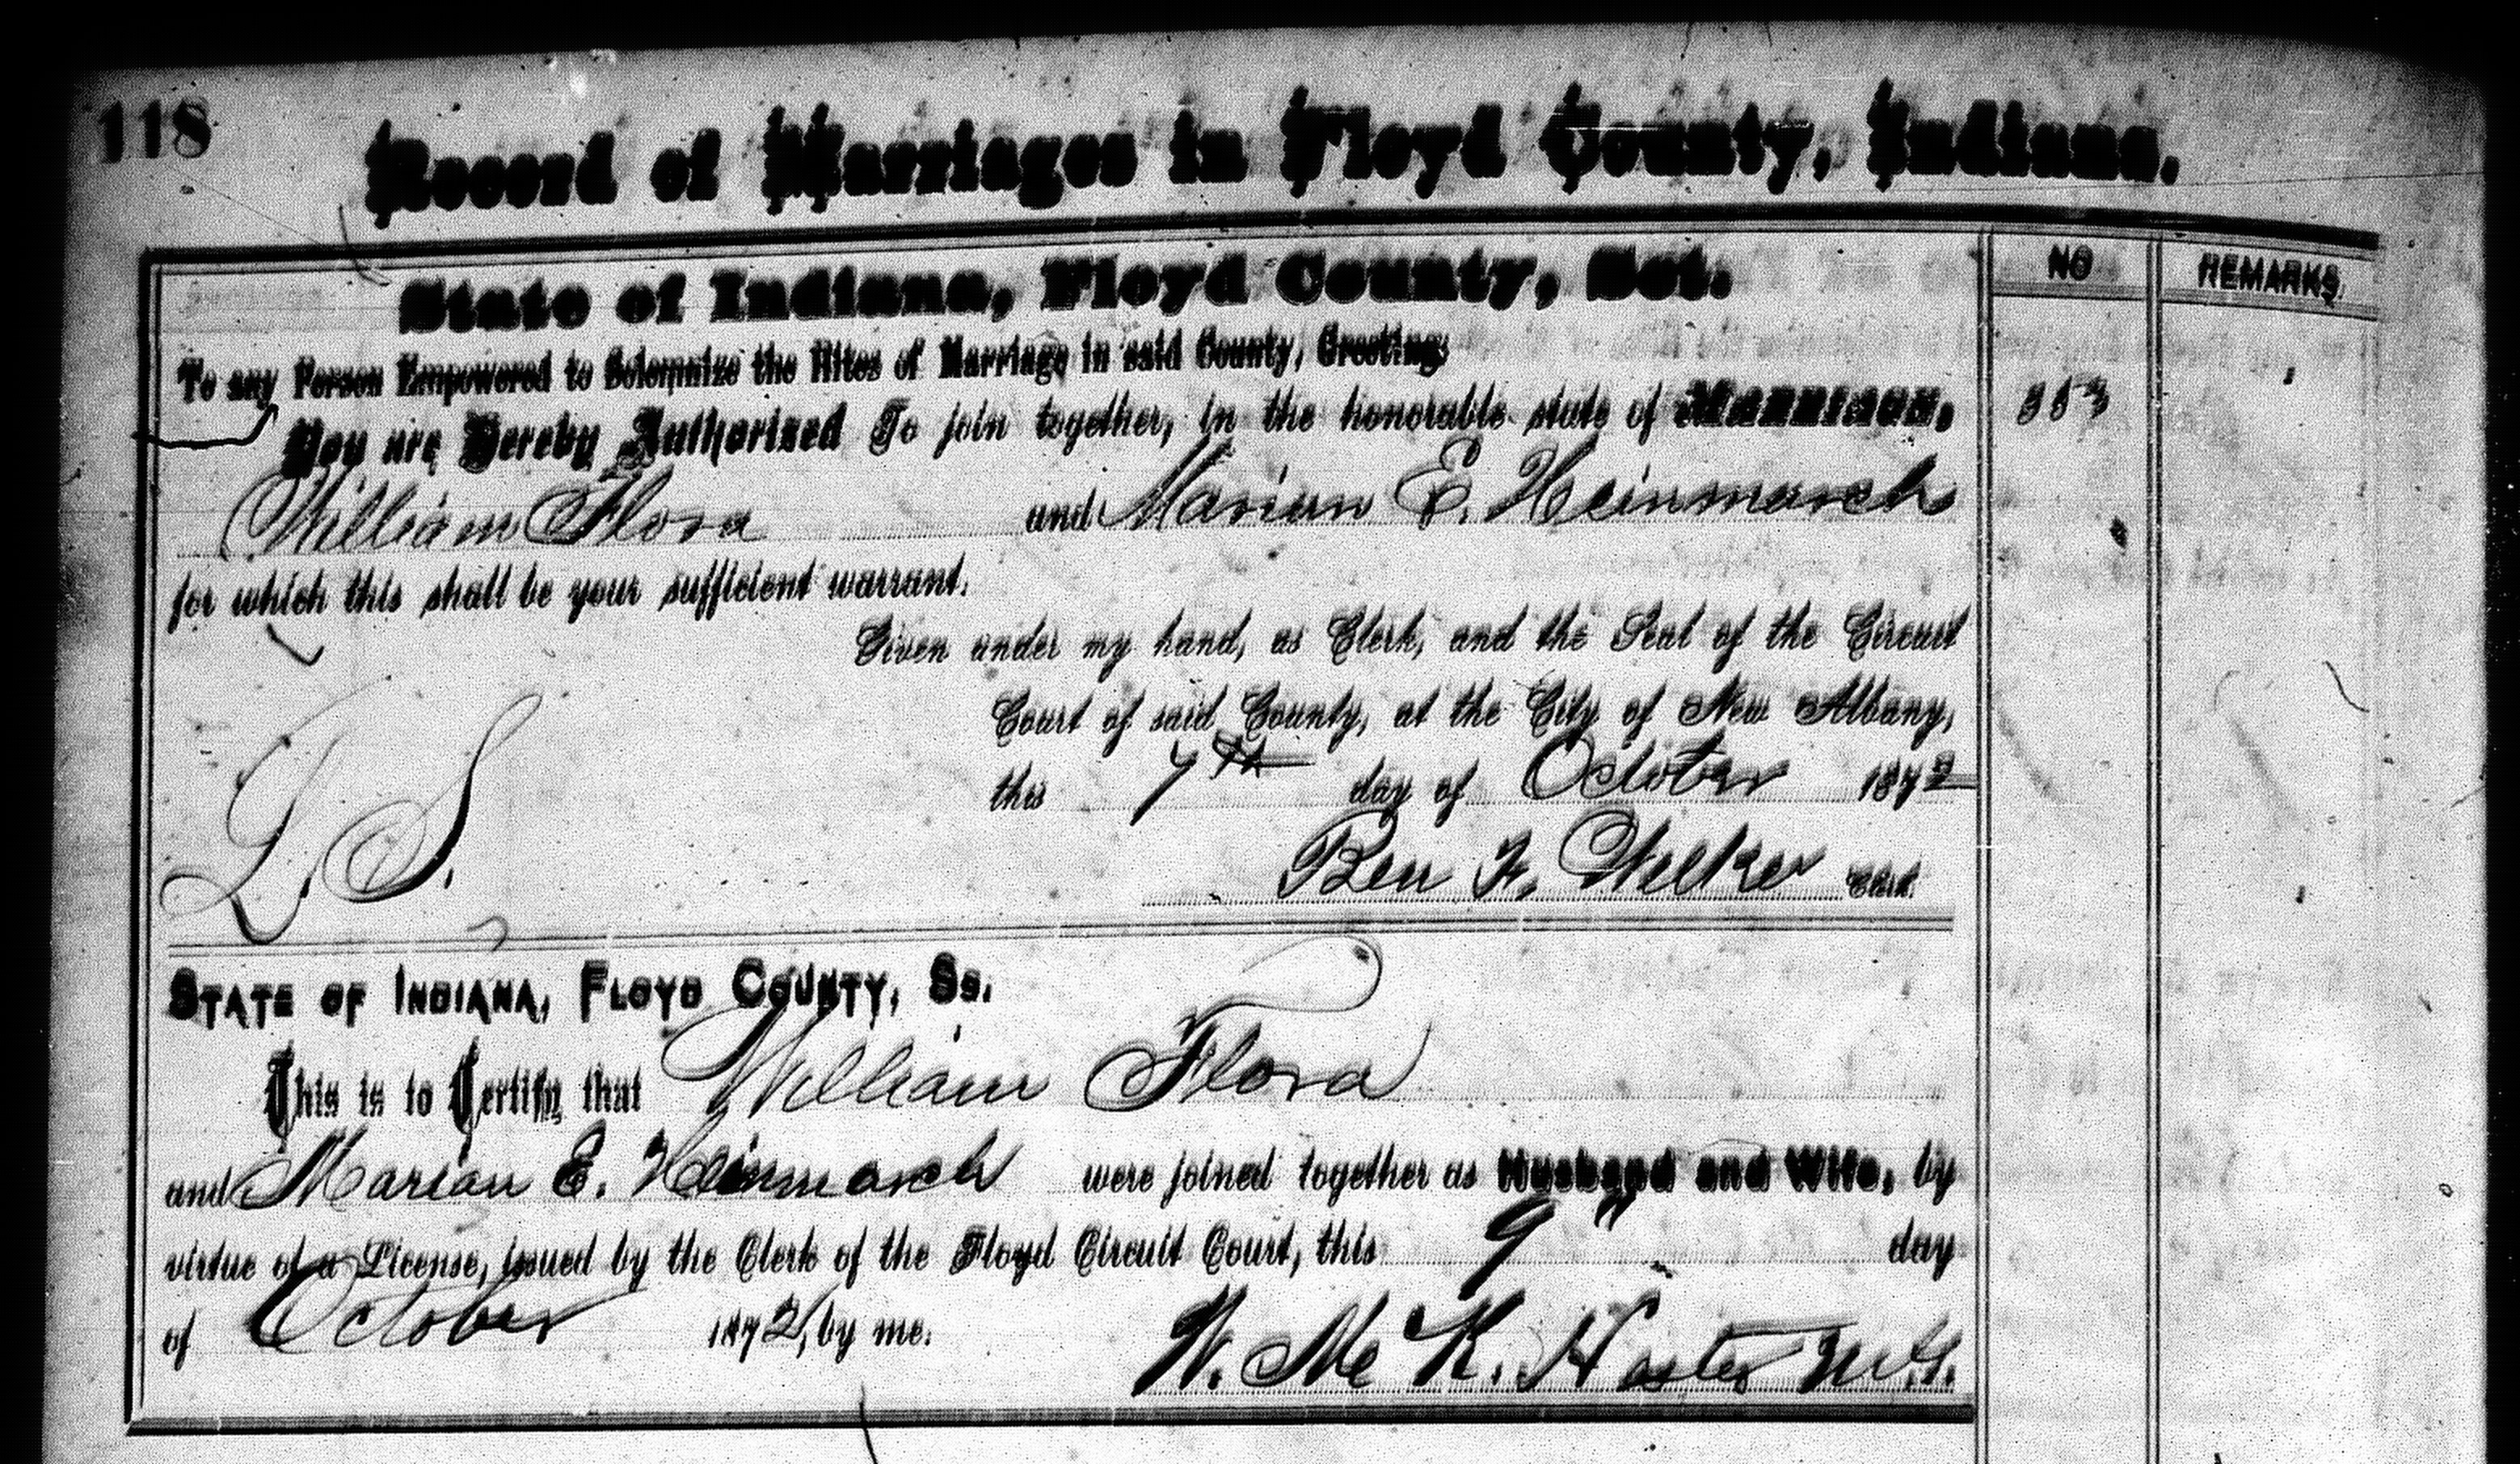 118
Record of Marriages in Floyd County, Indiana.
NO
REMARKS.
State of Indiana, Floyd County, Sct.
To any Person Empowered to Solemnize the Rites of Marriage in said County, Greeting:
You are Hereby Authorized To join together, in the honorable state of Marriage,
William Flora and Marian E. Heinmarch
for which this shall be your sufficient warrant.
Given under my hand, as Clerk, and the Seal of the Circuit
Court of said County, at the City of New Albany,
this 7th day of October 1872
L. S.
Ben F. Welker Clerk.
State of Indiana, Floyd County, Ss.
This is to Certify that William Flora
and Marian E. Heinmarch were joined together as Husband and Wife, by
virtue of a License, issued by the Clerk of the Floyd Circuit Court, this 9" day
of October 1872, by me.
W. Mc K. Hester M.G.